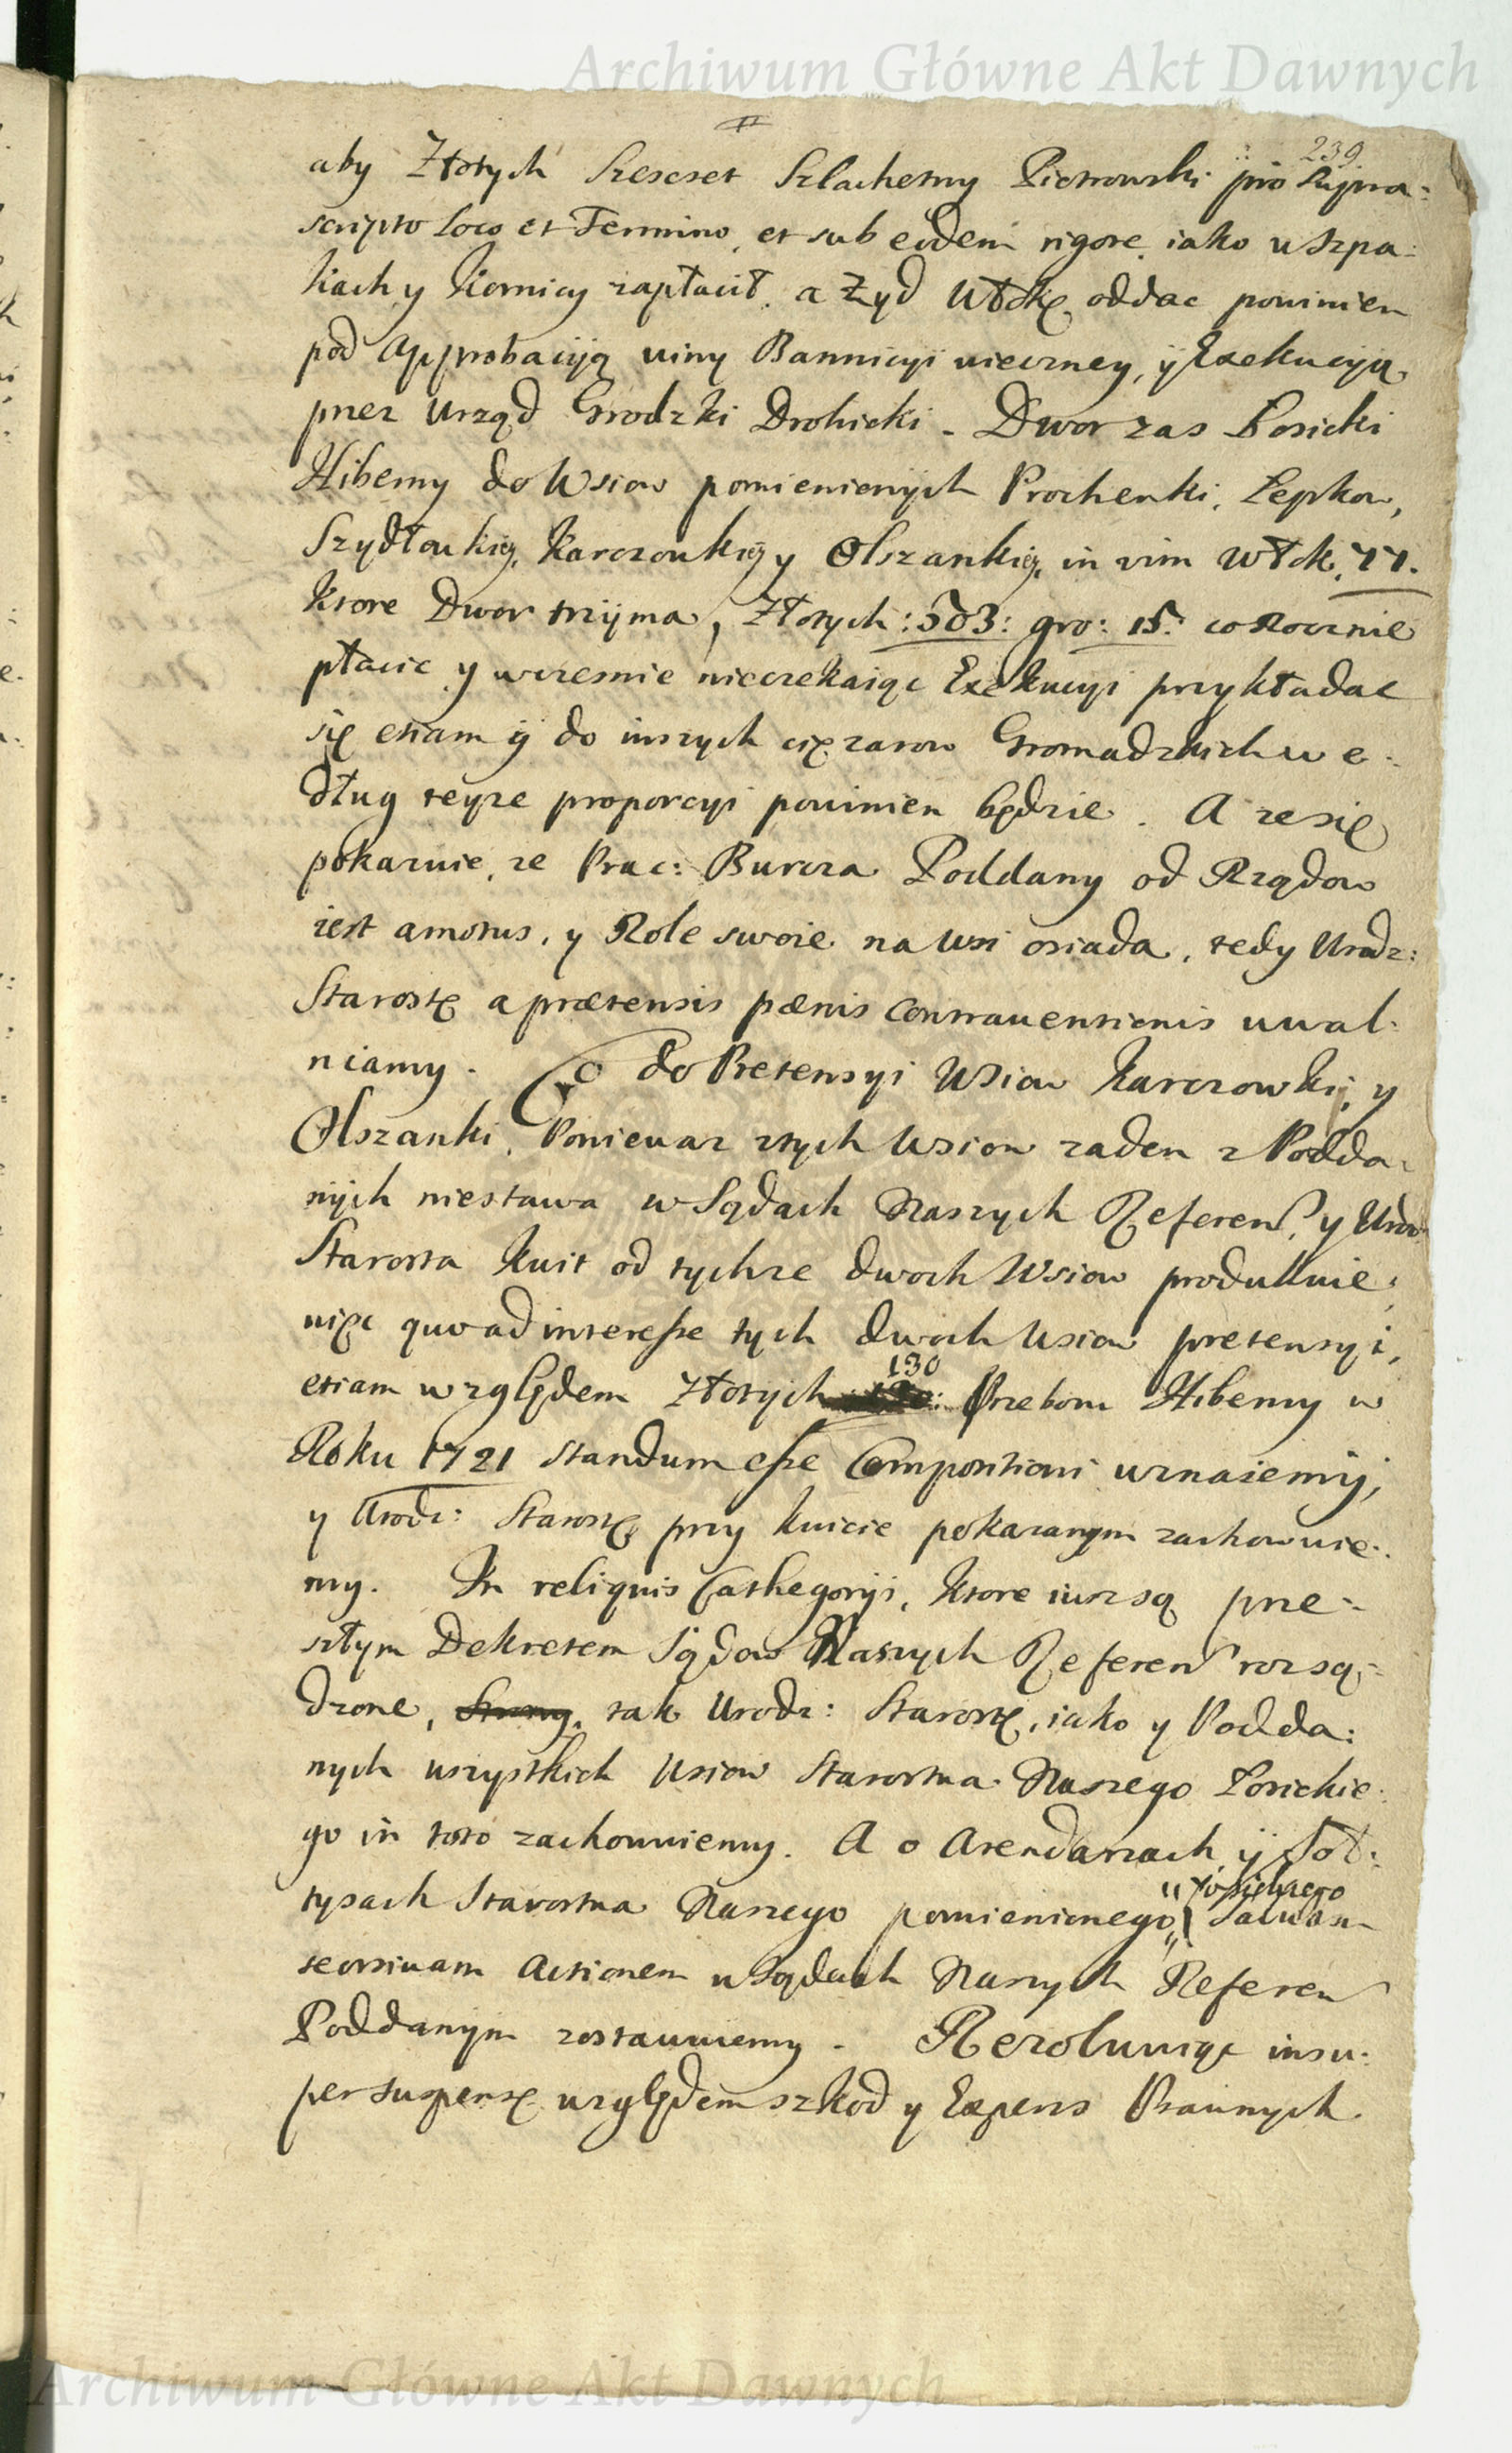 Archiwum Główne Akt Dawnych
239.
aby Złotych Szescset Szlachetny Piotrowski pro supra:
scripto loco et Termino, et sub eodem rigore, iako w Szpa:
kach y Kornicy zapłacił, a Żyd Włokę oddac powinien
pod Approbacyią winy Bannicyi wieczney, ÿ Exekucyią
przez Urząd Grodzki Drohicki. Dwor zas Łosicki
Hiberny do Wsiow pomienionÿch Prochenki, Łepkow,
Szydłowkiey, Karczowkiey y Olszankiey, in vim Włok, 77.
ktore Dwor trzÿma, Złotych: 503: gro: 15. co Rocznie
płacic y wczesnie nieczekaiąc Exekucyi przykładac
się etiam ÿ do inszych cięzarow Gromadzkich we:
dług teyze proporcyi powinien będzie. A ze się
pokazuie, ze Prac: Burcza Poddany od Rządow
iest amotus, y Role swoie na wsi osiada, tedy Urodz:
Starostę a prætensis pænis contraventionis uwal:
niamy. Co do Pretensyi Wsiow Karczowki, y
Olszanki, Poniewaz ztych Wsiow zaden z Podda:
nÿch niestawa w Sądach Naszych Referen, y Urodz
Starosta kwit od tychze dwoch Wsiow produkuie,
więc quoad interesse tych dwoch Wsiow pretensyi,
130
etiam względem Złotych Przeboru Hiberny w
Roku 1721 standum esse Compositioni uznaiemÿ,
y Urodz: Starostę przy kwicie pokazanym zachowuie:
my. In reliquis Cathegoryi, ktore iuz są prze:
szłym Dekretem Sądow Naszych Referen rozsą:
dzone, tak Urodz: Starostę, iako y Podda:
nych wszystkich Wsiow Starostwa Naszego Łosickie:
go in toto zachowuiemy. A o Arendarzach ÿ Soł:
Łosickiego
tysach Starostwa Naszego pomienionego, Salvam
seorsivam Actionem w Sądach Naszych Referen
Poddanÿm zostawuiemy. Rezolwuiąc insu:
per suspensę względem szkod y Expens Prawnych.
Archiwum Główne Akt Dawnych